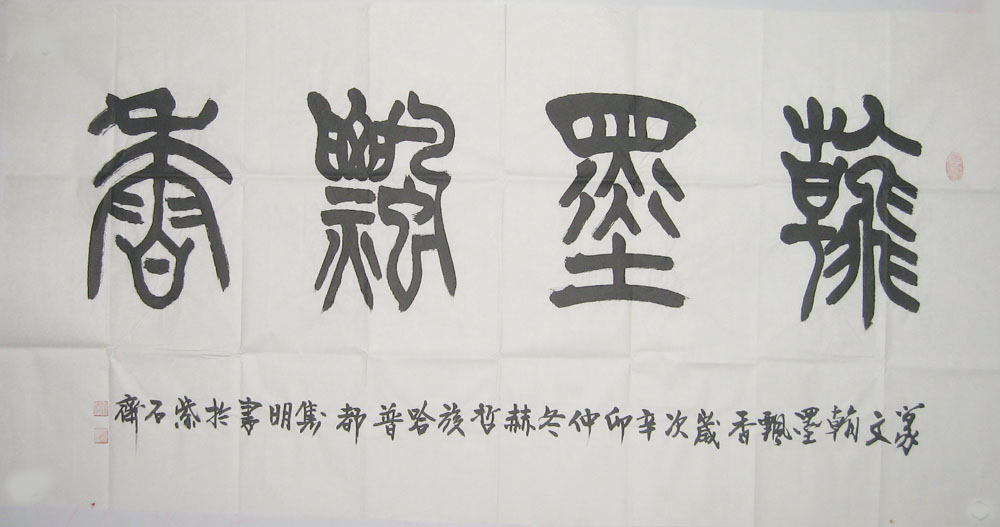 翰墨飘香
篆文翰墨飘香歲次辛卯仲冬赫哲族哈普都隽明書於紫石齋